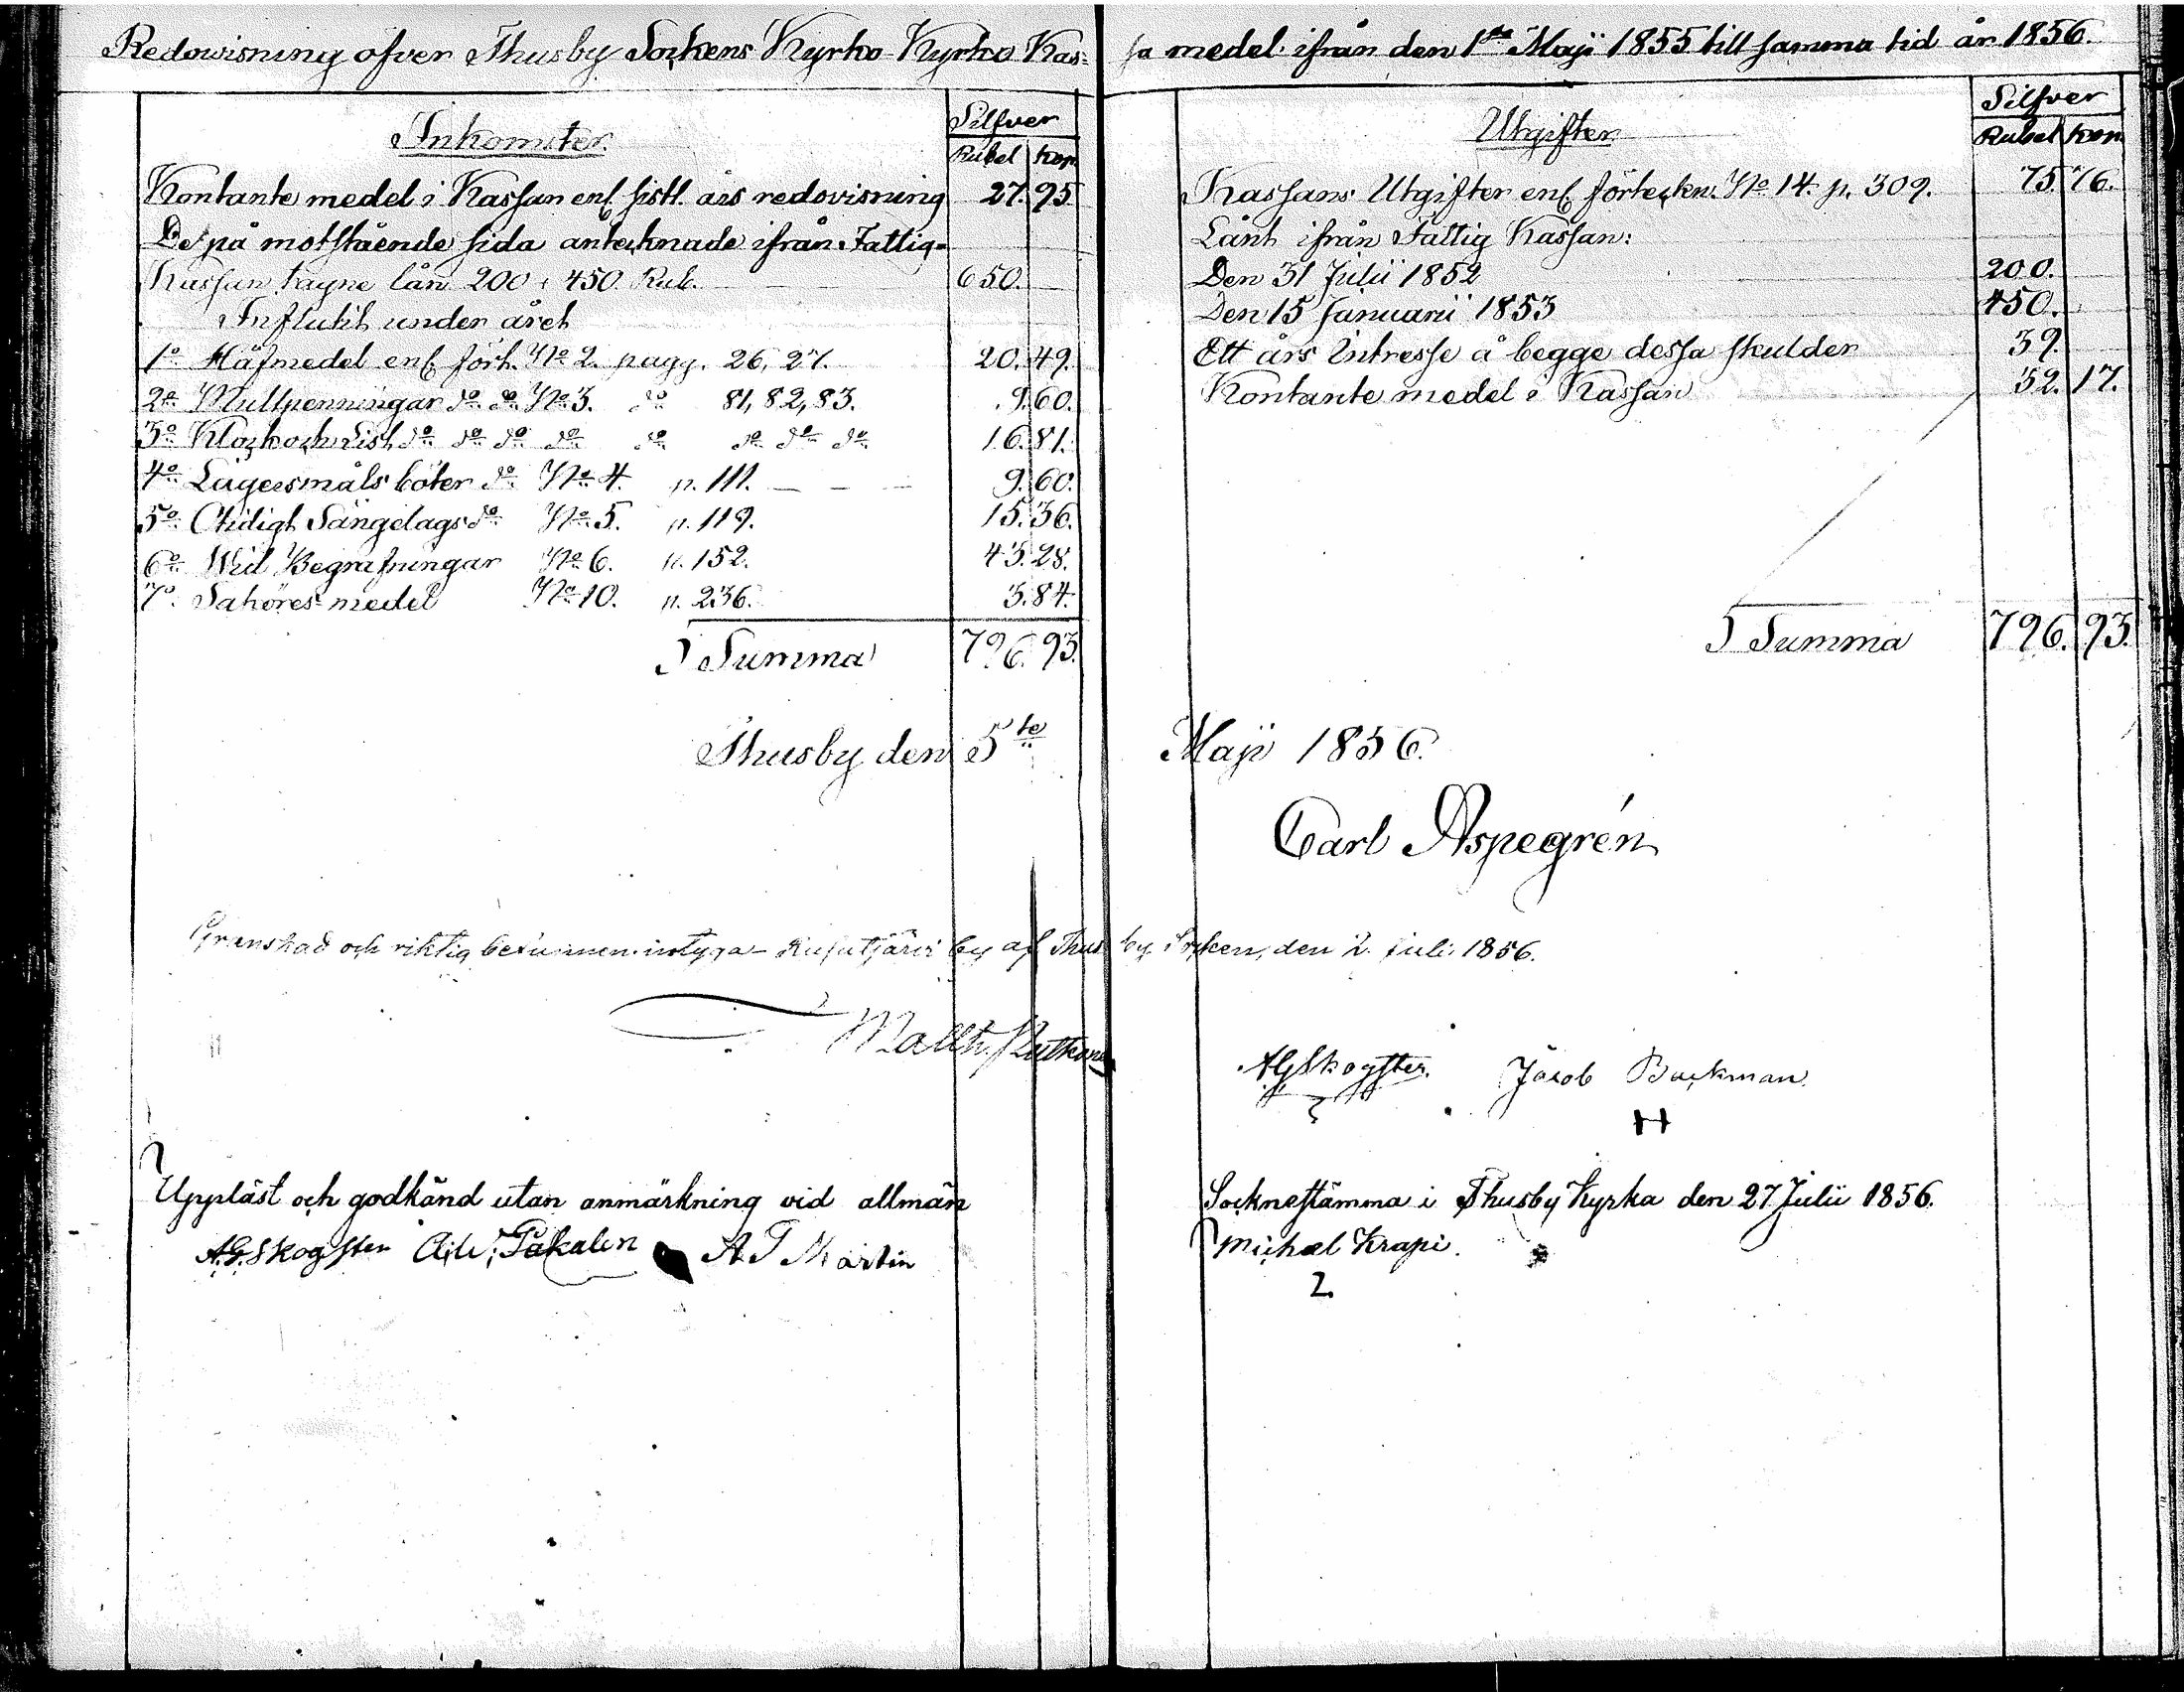 Redovisning öfver Thusby Sockens Kyrko-Kyrko Kas-
Inkomster.
Silfver
Rubel kop
Kontante medel i Kassan enl. sistl. års redovisning 27. 95
De på motstående sida antecknade ifrån Fattig-
Kassan tagne lån 200 + 450 Rub. 650.
Influtit under året
1o Håfmedel enl. fört. No 2. pagg. 26, 27. 20. 49.
2o Mullpenningar do do No 3. do 81, 82, 83. 9. 60.
3o Klock och List do do do do do do do do 16. 81.
4o Lägersmåls böter do No 4. p. 111. 9. 60.
5o Otidigt Sängelags do No 5. p. 119. 15. 36.
6o Wid Begrafningar No 6. p. 152. 43. 28.
7o Saköres medel No 10. p. 236. 3. 84.
Summa 796. 93.
Thusby den 5te
Granskad och riktig befunnen intyga by af Thus
Matth.
Uppläst och godkänd utan anmärkning vid allmän
A.G. Skogster Pakalen A J Martin
sa medel ifrån den 1sta Maji 1855 till samma tid år 1856.
Utgifter
Silfver
Rubel kop
Kassans Utgifter enl. förteckn. No 14. p. 309. 75. 76.
Lånt ifrån Fattig Kassan:
Den 31 Julii 1852 200.
Den 15 Januarii 1853 450.
Ett års Intresse å begge dessa skulder 39.
Kontante medel i Kassan 32. 17.
Summa 796. 93.
Maji 1856.
Carl Aspegrén
by Socken, den 2. juli 1856.
AG Skogster. Jacob Backman.
Socknestämma i Thusby Kyrka den 27 Julii 1856.
Michael Krapi.